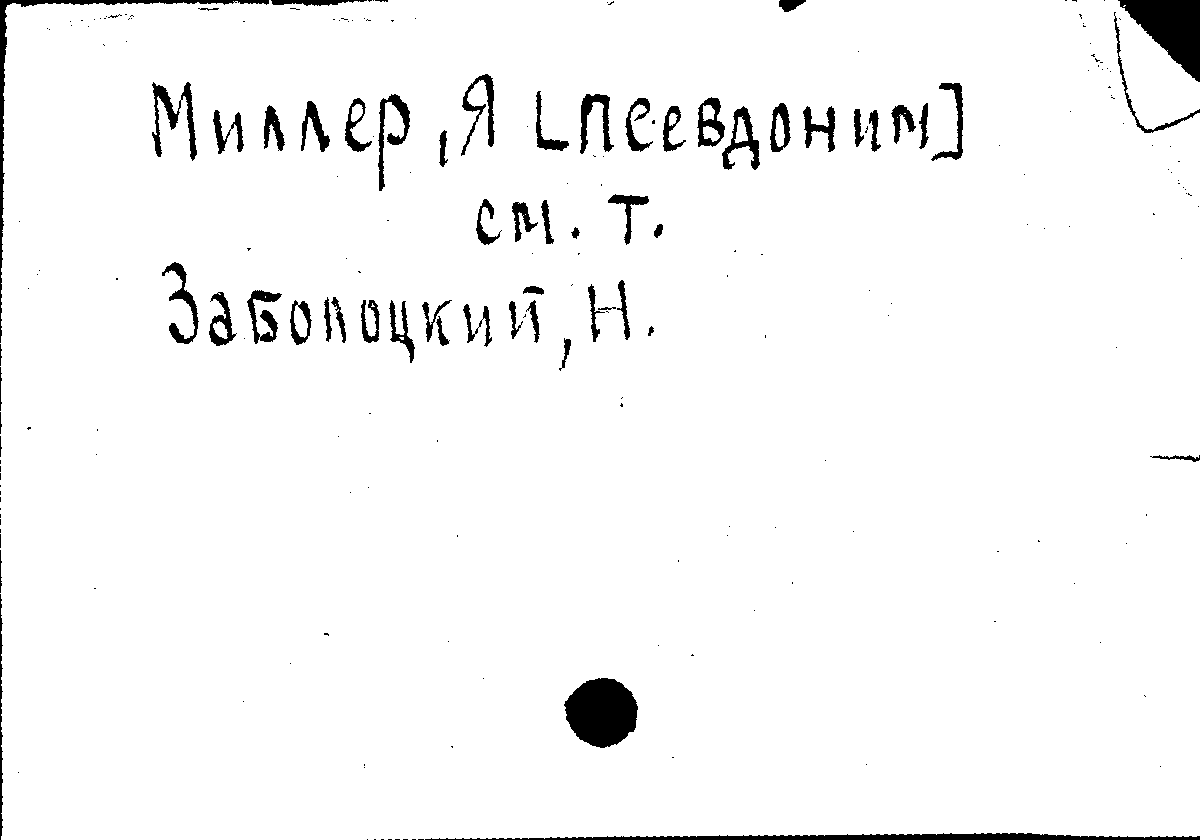 Миллер, Я [псевдоним]
см. т.
Заболоцкий, Н.